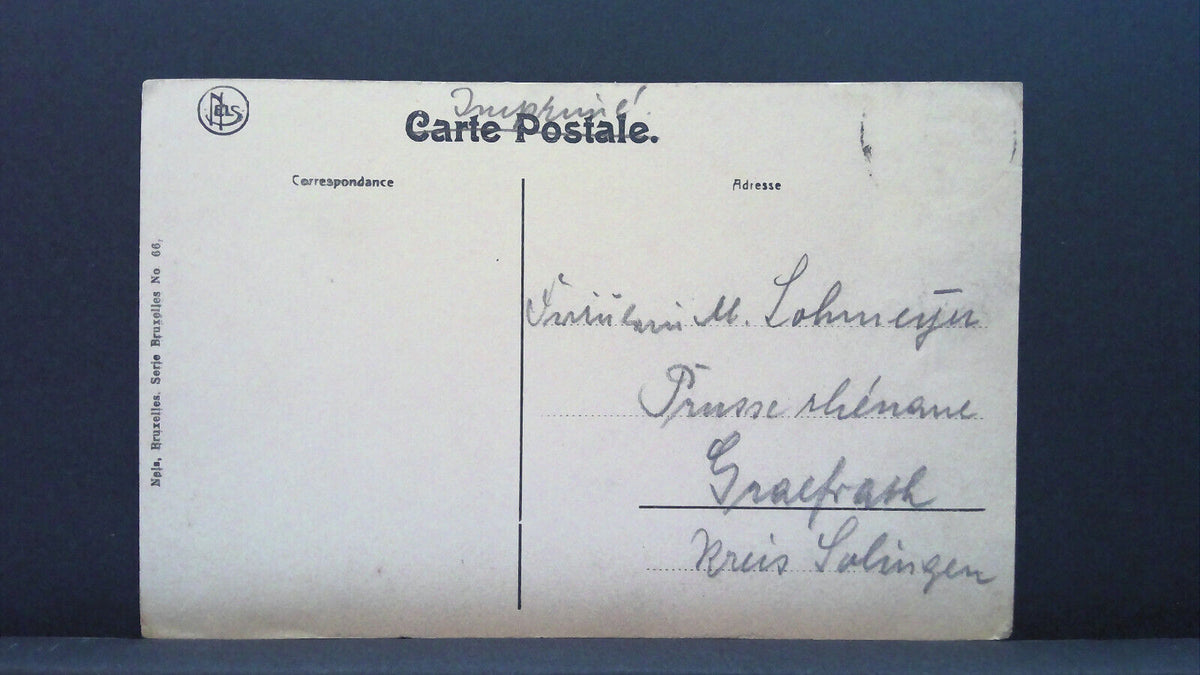 NELS
Imprimé
Carte Postale.
Correspondance
Adresse
Nels, Bruxelles. Serie Bruxelles No 66.
Fräulein M. Lohmeyer
Prusse rhénane
Graefrath
Kreis Solingen